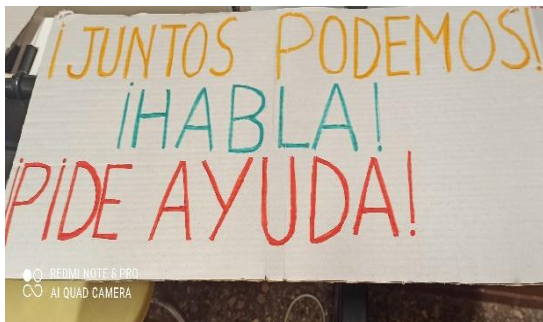 ¡JUNTOS PODEMOS!
¡HABLA!
¡PIDE AYUDA!
REDMI NOTE 8 PRO
AI QUAD CAMERA